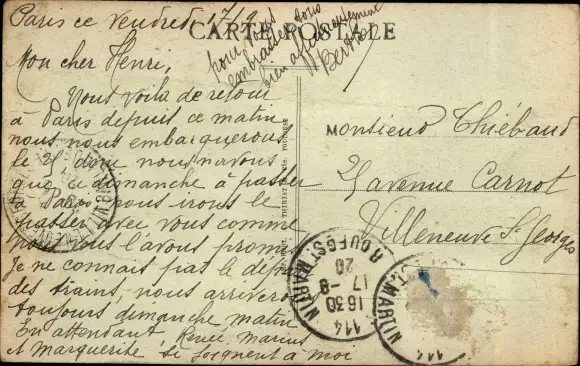 Paris ce Vendredi 17/9
CARTE POSTALE
Mon cher Henri,
Nous voila de retour
à Paris depuis ce matin
nous nous embarquerons
le 25 donc nous n'avons
que ce dimanche à passer
à Paris nous irons le
passer avec vous comme
nous vous l'avons promis
Je ne connais pas le départ
des trains, nous arriverons
toujours dimanche matin
En attendant, Renée, Marius
et Marguerite se joignent à moi
pour vous
embrasser tous
bien affectueusement
Monsieur Thiébaud
25 avenue Carnot
Villeneuve St Georges
114
1630
17-9
20
R. DU FG ST MARTIN
114
ST MARTIN